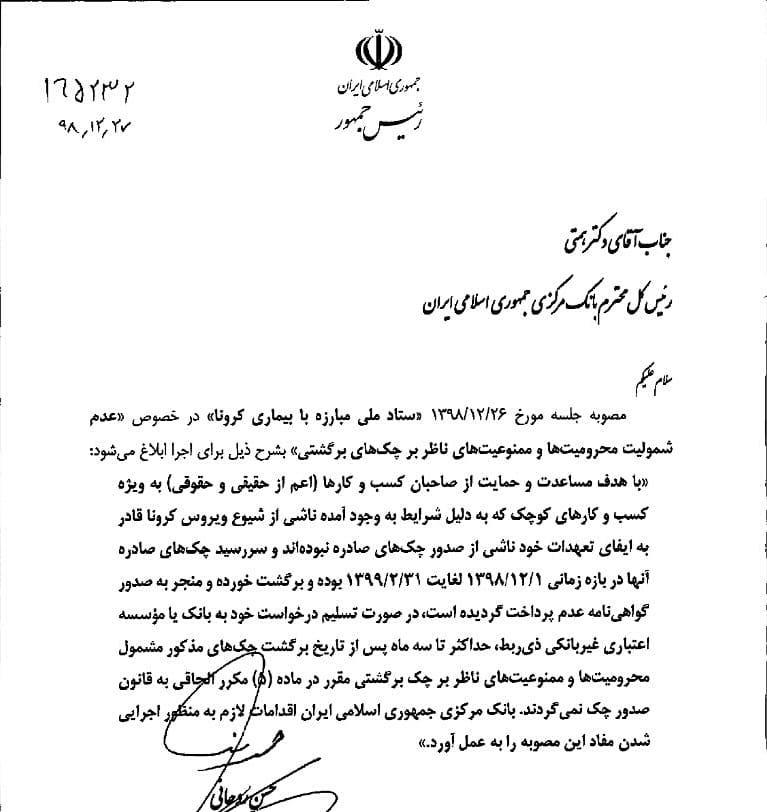 جمهوری اسلامی ایران
رئیس جمهور
۱۶۵۲۳۲
۹۸,۱۲,۲۷
جناب آقای دکتر همتی
رئیس کل محترم بانک مرکزی جمهوری اسلامی ایران
سلام علیکم
مصوبه جلسه مورخ ۱۳۹۸/۱۲/۲۶ «ستاد ملی مبارزه با بیماری کرونا» در خصوص «عدم
شمولیت محرومیت‌ها و ممنوعیت‌های ناظر بر چک‌های برگشتی» بشرح ذیل برای اجرا ابلاغ می‌شود:
«با هدف مساعدت و حمایت از صاحبان کسب و کارها (اعم از حقیقی و حقوقی) به ویژه
کسب و کارهای کوچک که به دلیل شرایط به وجود آمده ناشی از شیوع ویروس کرونا قادر
به ایفای تعهدات خود ناشی از صدور چک‌های صادره نبوده‌اند و سررسید چک‌های صادره
آنها در بازه زمانی ۱۳۹۸/۱۲/۱ لغایت ۱۳۹۹/۲/۳۱ بوده و برگشت خورده و منجر به صدور
گواهی‌نامه عدم پرداخت گردیده است، در صورت تسلیم درخواست خود به بانک یا مؤسسه
اعتباری غیربانکی ذی‌ربط، حداکثر تا سه ماه پس از تاریخ برگشت چک‌های مذکور مشمول
محرومیت‌ها و ممنوعیت‌های ناظر بر چک برگشتی مقرر در ماده (۵) مکرر الحاقی به قانون
صدور چک نمی‌گردند. بانک مرکزی جمهوری اسلامی ایران اقدامات لازم به منظور اجرایی
شدن مفاد این مصوبه را به عمل آورد.»
حسن روحانی